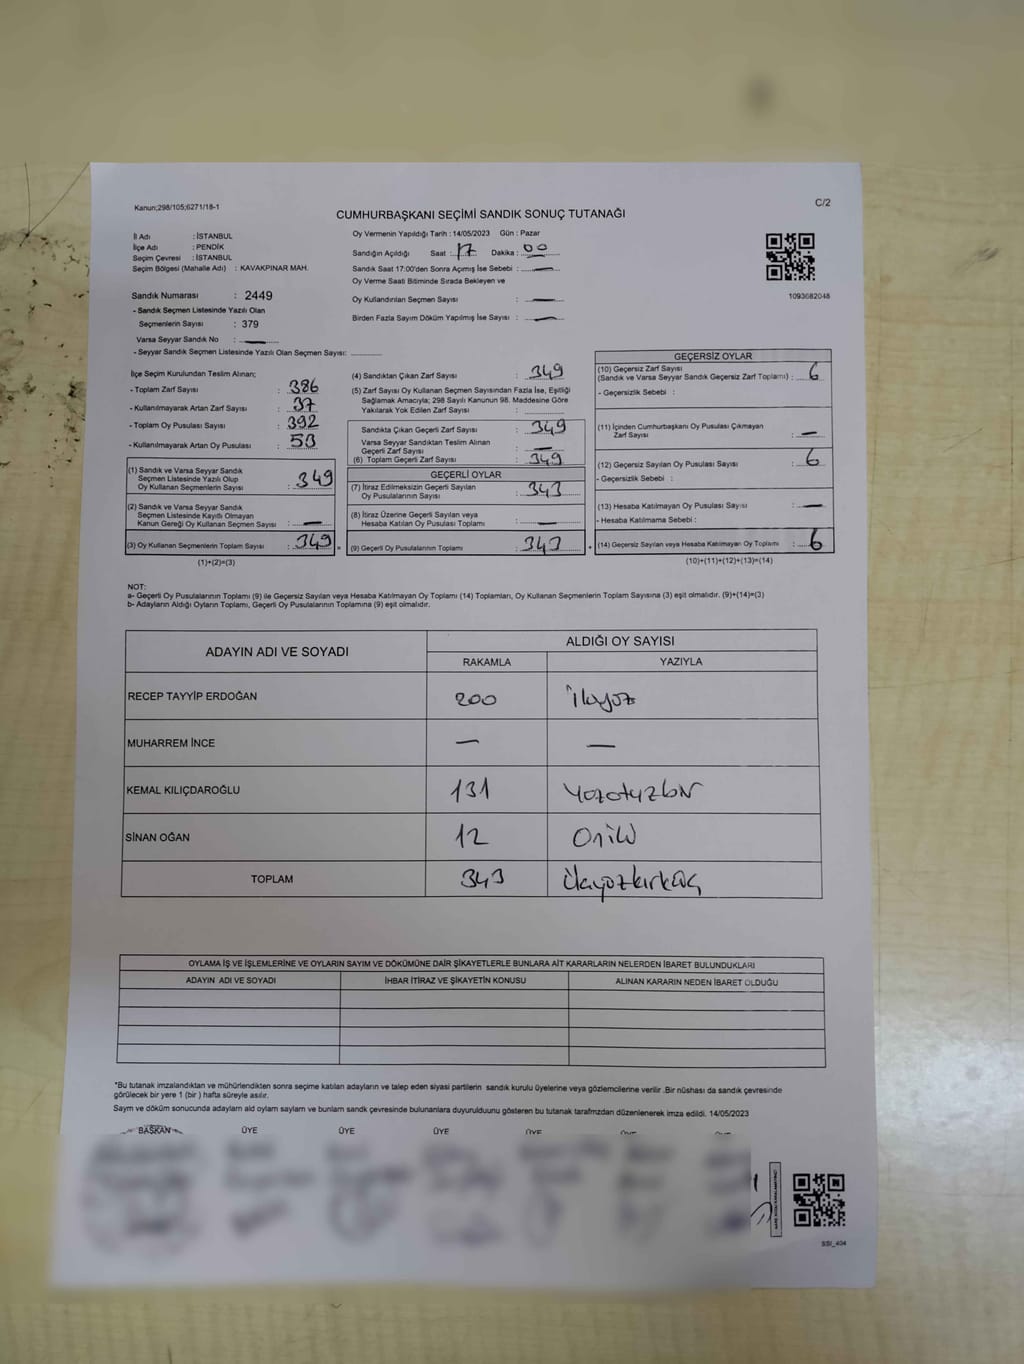 Kanun;298/105;6271/18-1
C/2
CUMHURBAŞKANI SEÇİMİ SANDIK SONUÇ TUTANAĞI
İl Adı : İSTANBUL
İlçe Adı : PENDİK
Seçim Çevresi : İSTANBUL
Seçim Bölgesi (Mahalle Adı) : KAVAKPINAR MAH.
Sandık Numarası : 2449
- Sandık Seçmen Listesinde Yazılı Olan
Seçmenlerin Sayısı : 379
Varsa Seyyar Sandık No : —
- Seyyar Sandık Seçmen Listesinde Yazılı Olan Seçmen Sayısı:
Oy Vermenin Yapıldığı Tarih : 14/05/2023 Gün : Pazar
Sandığın Açıldığı Saat : 17 Dakika : 00
Sandık Saat 17:00'den Sonra Açımış İse Sebebi : —
Oy Verme Saati Bitiminde Sırada Bekleyen ve
Oy Kullandırılan Seçmen Sayısı : —
Birden Fazla Sayım Döküm Yapılmış İse Sayısı : —
1093682048
İlçe Seçim Kurulundan Teslim Alınan;
- Toplam Zarf Sayısı : 386
- Kullanılmayarak Artan Zarf Sayısı : 37
- Toplam Oy Pusulası Sayısı : 392
- Kullanılmayarak Artan Oy Pusulası : 53
(1) Sandık ve Varsa Seyyar Sandık
Seçmen Listesinde Yazılı Olup
Oy Kullanan Seçmenlerin Sayısı : 349
(2) Sandık ve Varsa Seyyar Sandık
Seçmen Listesinde Kayıtlı Olmayan
Kanun Gereği Oy Kullanan Seçmen Sayısı : —
(3) Oy Kullanan Seçmenlerin Toplam Sayısı : 349
(1)+(2)=(3)
(4) Sandıktan Çıkan Zarf Sayısı : 349
(5) Zarf Sayısı Oy Kullanan Seçmen Sayısından Fazla İse, Eşitliği
Sağlamak Amacıyla; 298 Sayılı Kanunun 98. Maddesine Göre
Yakılarak Yok Edilen Zarf Sayısı :
Sandıkta Çıkan Geçerli Zarf Sayısı : 349
Varsa Seyyar Sandıktan Teslim Alınan
Geçerli Zarf Sayısı : —
(6) Toplam Geçerli Zarf Sayısı : 349
GEÇERLİ OYLAR
(7) İtiraz Edilmeksizin Geçerli Sayılan
Oy Pusulalarının Sayısı : 343
(8) İtiraz Üzerine Geçerli Sayılan veya
Hesaba Katılan Oy Pusulası Toplamı : —
(9) Geçerli Oy Pusulalarının Toplamı : 343
GEÇERSİZ OYLAR
(10) Geçersiz Zarf Sayısı
(Sandık ve Varsa Seyyar Sandık Geçersiz Zarf Toplamı) : 6
- Geçersizlik Sebebi :
(11) İçinden Cumhurbaşkanı Oy Pusulası Çıkmayan
Zarf Sayısı : —
(12) Geçersiz Sayılan Oy Pusulası Sayısı : 6
- Geçersizlik Sebebi :
(13) Hesaba Katılmayan Oy Pusulası Sayısı : —
- Hesaba Katılmama Sebebi :
(14) Geçersiz Sayılan veya Hesaba Katılmayan Oy Toplamı : 6
(10)+(11)+(12)+(13)=(14)
NOT:
a- Geçerli Oy Pusulalarının Toplamı (9) ile Geçersiz Sayılan veya Hesaba Katılmayan Oy Toplamı (14) Toplamları, Oy Kullanan Seçmenlerin Toplam Sayısına (3) eşit olmalıdır. (9)+(14)=(3)
b- Adayların Aldığı Oyların Toplamı, Geçerli Oy Pusulalarının Toplamına (9) eşit olmalıdır.
ADAYIN ADI VE SOYADI ALDIĞI OY SAYISI
RAKAMLA YAZIYLA
RECEP TAYYİP ERDOĞAN 200 ikiyüz
MUHARREM İNCE — —
KEMAL KILIÇDAROĞLU 131 Yüzotuzbir
SİNAN OĞAN 12 Oniki
TOPLAM 343 Üçyüzkırküç
OYLAMA İŞ VE İŞLEMLERİNE VE OYLARIN SAYIM VE DÖKÜMÜNE DAİR ŞİKAYETLERLE BUNLARA AİT KARARLARIN NELERDEN İBARET BULUNDUKLARI
ADAYIN ADI VE SOYADI İHBAR İTİRAZ VE ŞİKAYETİN KONUSU ALINAN KARARIN NEDEN İBARET OLDUĞU
*Bu tutanak imzalandıktan ve mühürlendikten sonra seçime katılan adayların ve talep eden siyasi partilerin sandık kurulu üyelerine veya gözlemcilerine verilir .Bir nüshası da sandık çevresinde
görülecek bir yere 1 (bir ) hafta süreyle asılır.
Sayım ve döküm sonucunda adayların ald oyların sayıları ve bunların sandk çevresinde bulunanlara duyurulduunu gösteren bu tutanak tarafmzdan düzenlenerek imza edildi. 14/05/2023
BAŞKAN ÜYE ÜYE ÜYE ÜYE
SSI_404